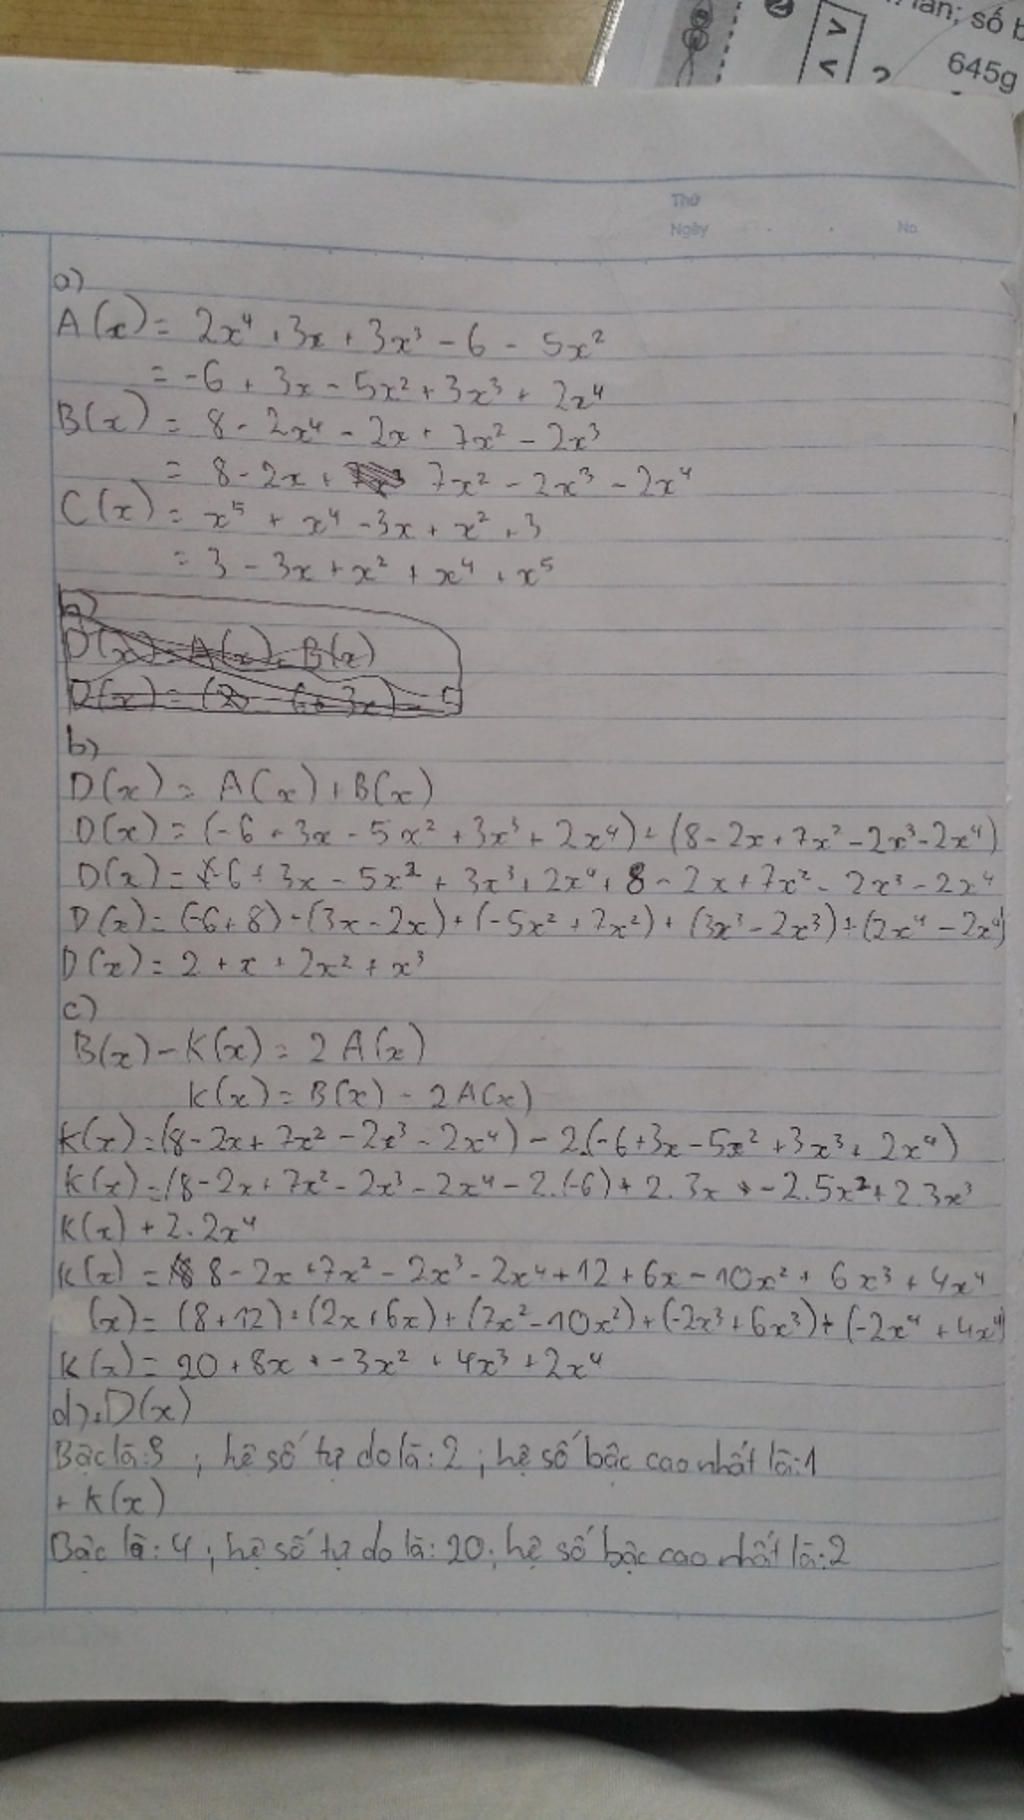 ần; số b
645g
2
> <
?
Thứ
Ngày . . No
a)
A(x) = 2x⁴ + 3x + 3x³ - 6 - 5x²
= -6 + 3x - 5x² + 3x³ + 2x⁴
B(x) = 8 - 2x⁴ - 2x + 7x² - 2x³
= 8 - 2x + 7x² - 2x³ - 2x⁴
C(x) = x⁵ + x⁴ - 3x + x² + 3
= 3 - 3x + x² + x⁴ + x⁵
D(x) = A(x) + B(x)
b)
D(x) = A(x) + B(x)
D(x) = (-6 + 3x - 5x² + 3x³ + 2x⁴) + (8 - 2x + 7x² - 2x³ - 2x⁴)
D(x) = -6 + 3x - 5x² + 3x³ + 2x⁴ + 8 - 2x + 7x² - 2x³ - 2x⁴
D(x) = (-6 + 8) + (3x - 2x) + (-5x² + 7x²) + (3x³ - 2x³) + (2x⁴ - 2x⁴)
D(x) = 2 + x + 2x² + x³
c)
B(x) - K(x) = 2A(x)
K(x) = B(x) - 2A(x)
K(x) = (8 - 2x + 7x² - 2x³ - 2x⁴) - 2.(-6 + 3x - 5x² + 3x³ + 2x⁴)
K(x) = (8 - 2x + 7x² - 2x³ - 2x⁴ - 2.(-6) + 2.3x + -2.5x² + 2.3x³
K(x) + 2.2x⁴
K(x) = 8 - 2x + 7x² - 2x³ - 2x⁴ + 12 + 6x - 10x² + 6x³ + 4x⁴
(x) = (8 + 12) + (2x + 6x) + (7x² - 10x²) + (-2x³ + 6x³) + (-2x⁴ + 4x⁴)
K(x) = 20 + 8x + -3x² + 4x³ + 2x⁴
d) + D(x)
Bậc là: 3 ; hệ số tự do là: 2 ; hệ số bậc cao nhất là: 1
+ K(x)
Bậc là: 4 ; hệ số tự do là: 20 ; hệ số bậc cao nhất là: 2